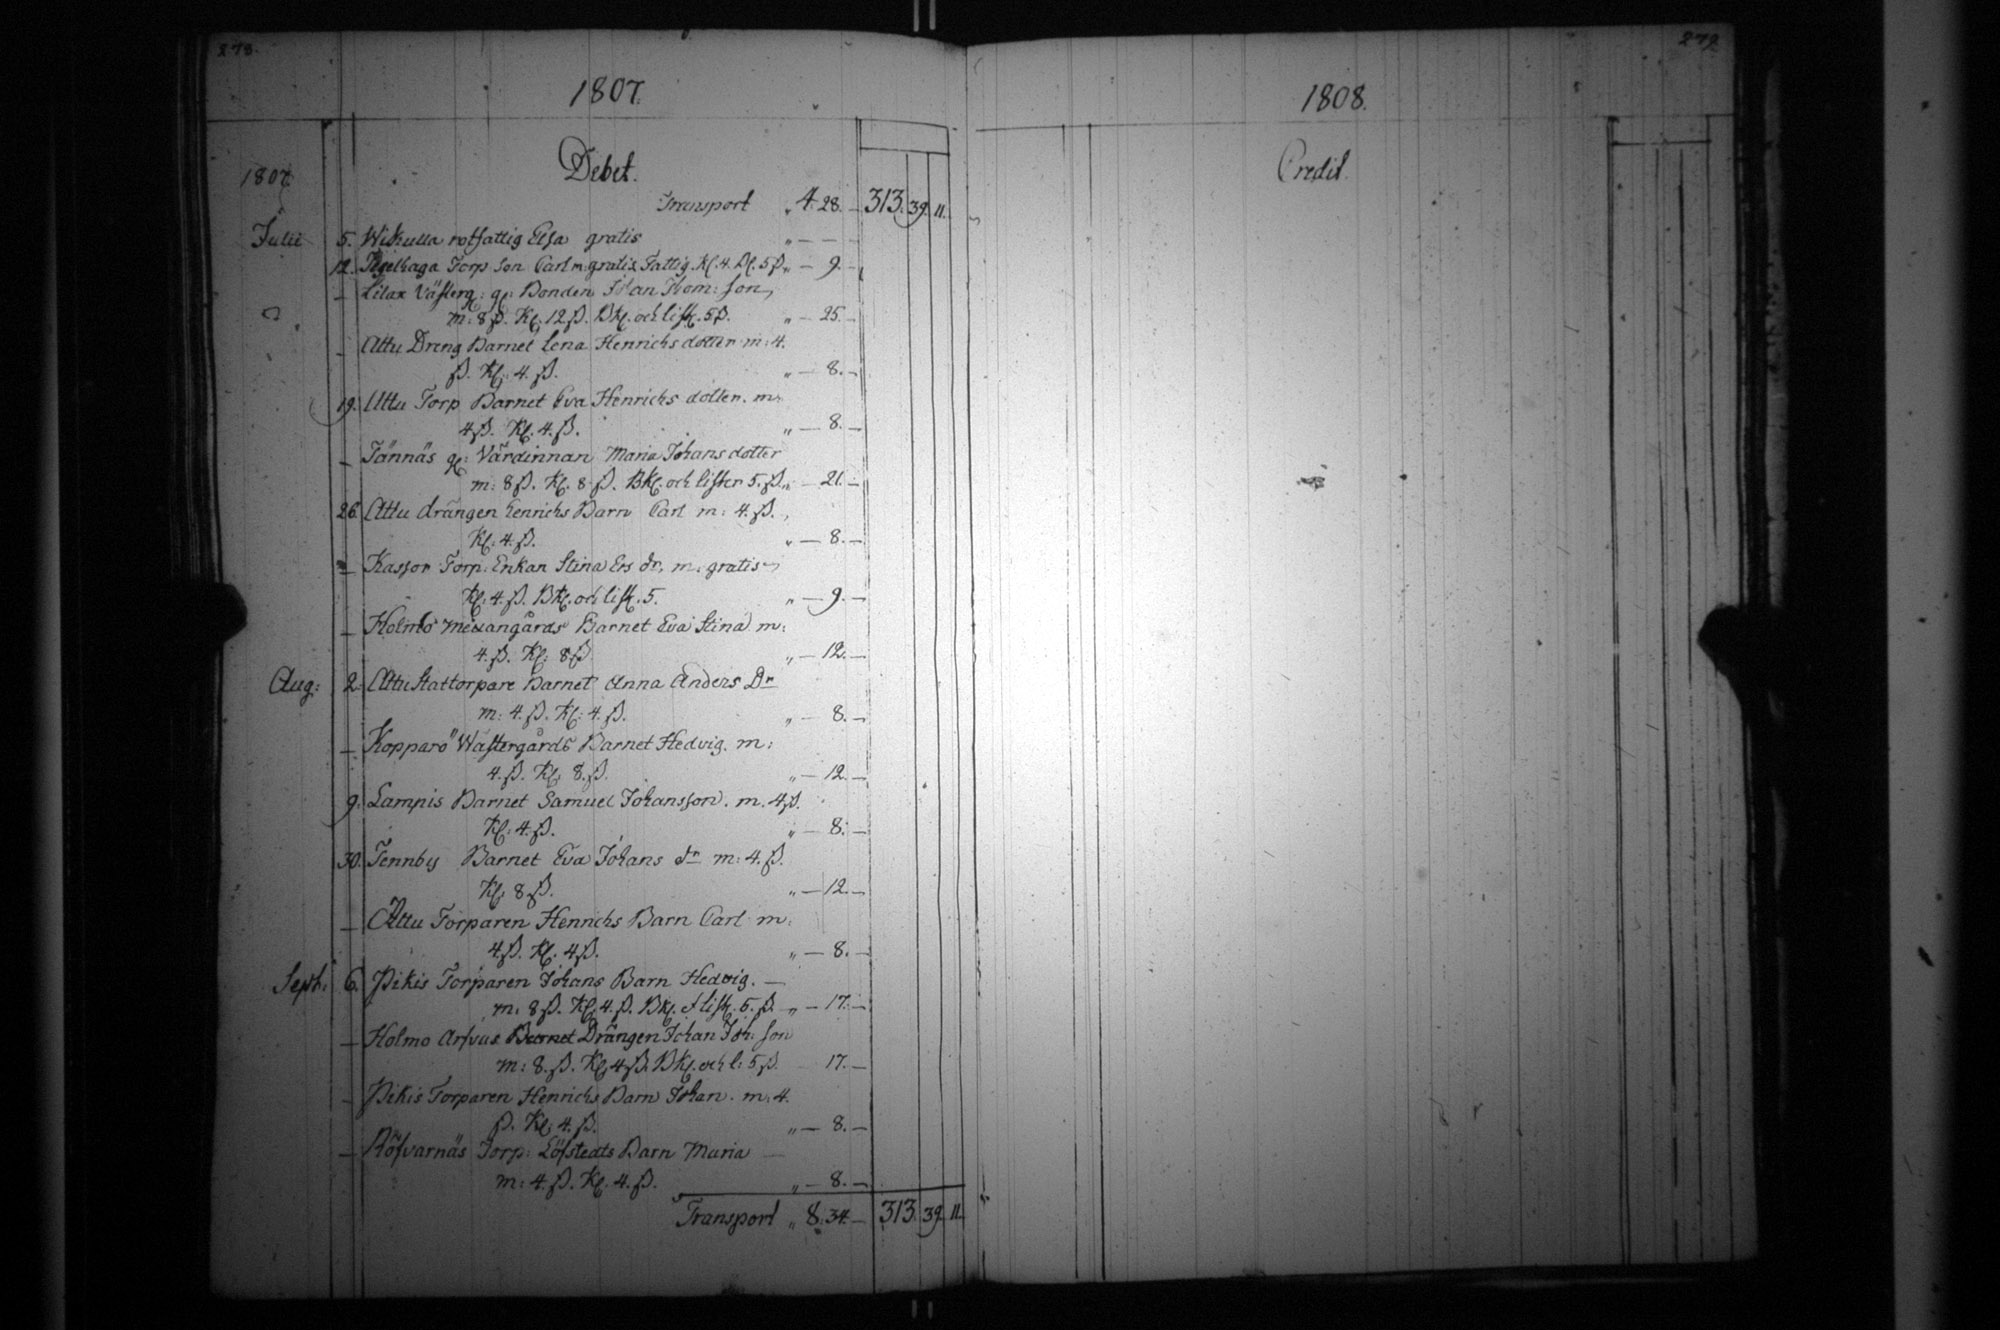 278.
1807.
Debet.
1807.
Transport " 4. 28. — 313. 39. 11.
Julii 5. Wikulla rotfattig Elsa gratis " — — —
12. Tegelhaga Torp son Carl m: gratis. Fattig. Kl. 4. Bl. 5 ß. " — 9. —
— Lilax Västerg: gl: Bonden Johan Thom: son,
m: 8 ß. Kl. 12 ß. Bkl. och lisk. 5 ß. " — 25. —
— Attu Dreng Barnet Lena Henrichs dotter m: 4.
ß. Kl: 4. ß. " — 8. —
19. Attu Torp Barnet Eva Henrichs dotter. m:
4 ß. Kl. 4. ß. " — 8. —
— Jännäs gl: Värdinnan Maria Johans dotter
m: 8 ß. Kl. 8 ß. Bkl. och lister 5. ß. " — 21. —
26. Attu drängen Henrichs Barn Carl m: 4. ß.
Kl: 4. ß. " — 8. —
— Kassor Torp: Enkan Stina Ers dr, m: gratis
Kl: 4. ß. Bkl. och lisk. 5. " — 9. —
— Holmo Mellangårds Barnet Eva Stina m:
4. ß. Kl: 8 ß " — 12. —
Aug: 2. Attu Stattorpare Barnet Anna Anders Dr
m: 4. ß. Kl: 4. ß. " — 8. —
— Kopparö Wästergårds Barnet Hedvig. m:
4. ß. Kl: 8. ß. " — 12. —
9. Lampis Barnet Samuel Johansson. m. 4 ß.
Kl: 4. ß. " — 8. —
30. Tennby Barnet Eva Johans dr m: 4. ß.
Kl: 8 ß. " — 12. —
— Attu Torparen Henrichs Barn Carl m:
4 ß. Kl. 4 ß. " — 8. —
Sept: 6. Pikis Torparen Johans Barn Hedvig. —
m: 8 ß. Kl. 4. ß. Bkl. et lisk. 5. ß. " — 17. —
— Holmo Arfvus Barnet Drängen Johan Joh: son
m: 8. ß. Kl. 4 ß. Bkl. och l: 5 ß. — 17. —
— Pikis Torparen Henrichs Barn Johan. m: 4.
ß. Kl: 4. ß. " — 8. —
— Röfvarnäs Torp: Löfstedts Barn Maria —
m: 4. ß. Kl. 4. ß. " — 8. —
Transport " 8. 34. — 313. 39. 11.
279.
1808.
Credit.